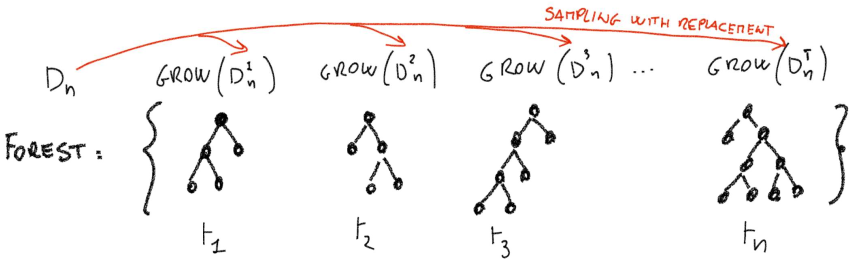 SAMPLING WITH REPLACEMENT
Dn GROW(D¹n) GROW(D²n) GROW(D³n) ... GROW(Dᵀn)
FOREST: { }
t1 t2 t3 tn